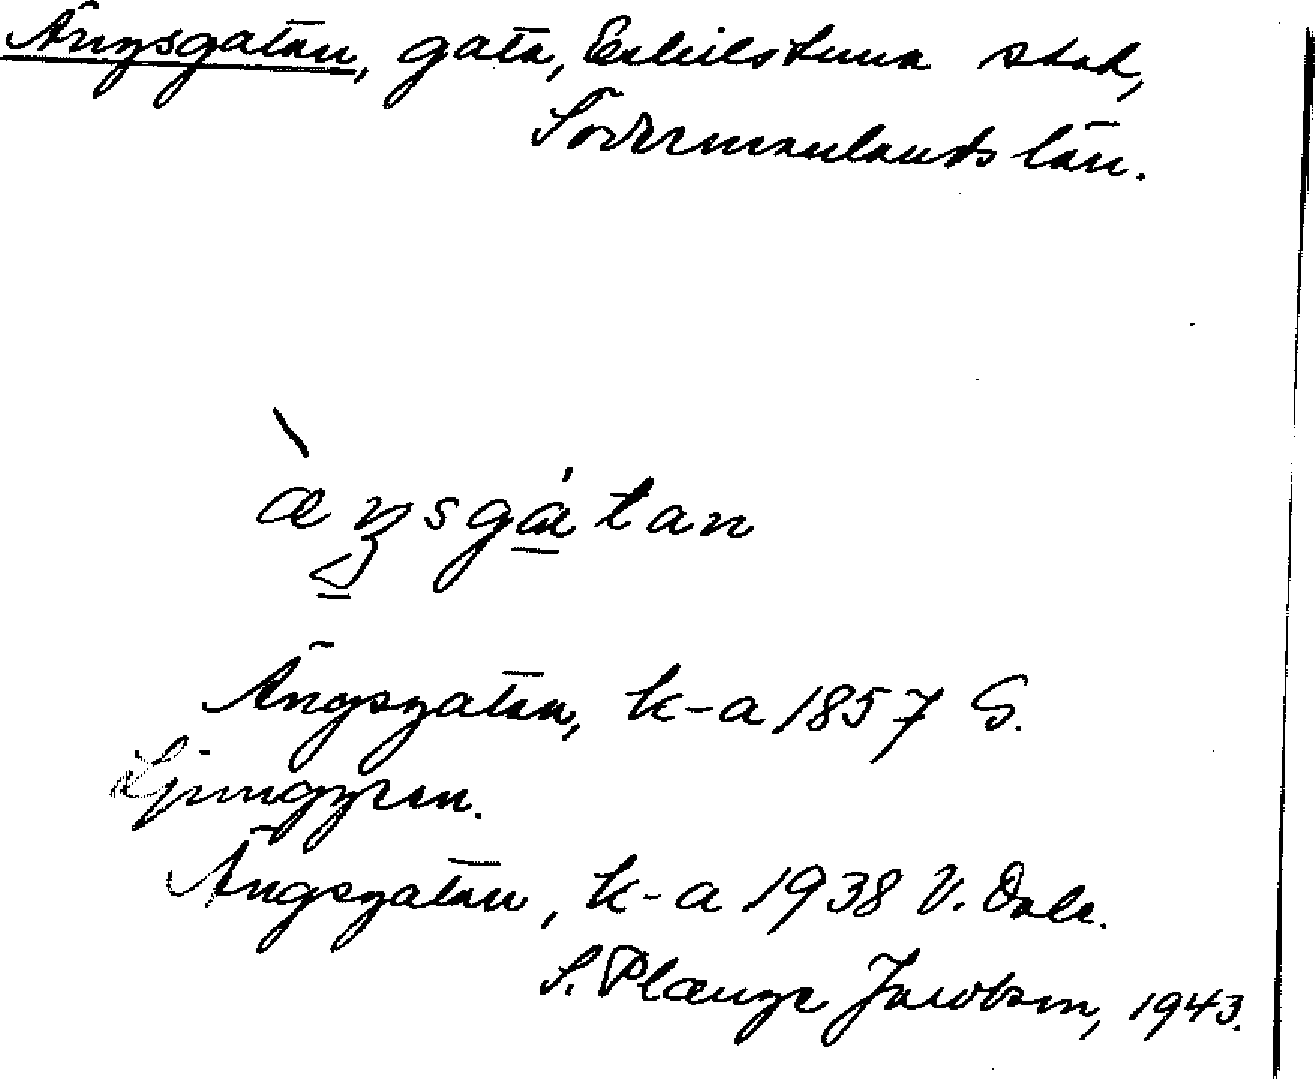 Ängsgatan, gata, Eskilstuna stad,
Södermanlands län.
Ängsgatan, k-a 1857 G.
Ljunggren.
Ängsgatan, k-a 1938 V. Dale.
S. Plænge Jacobson, 1943.